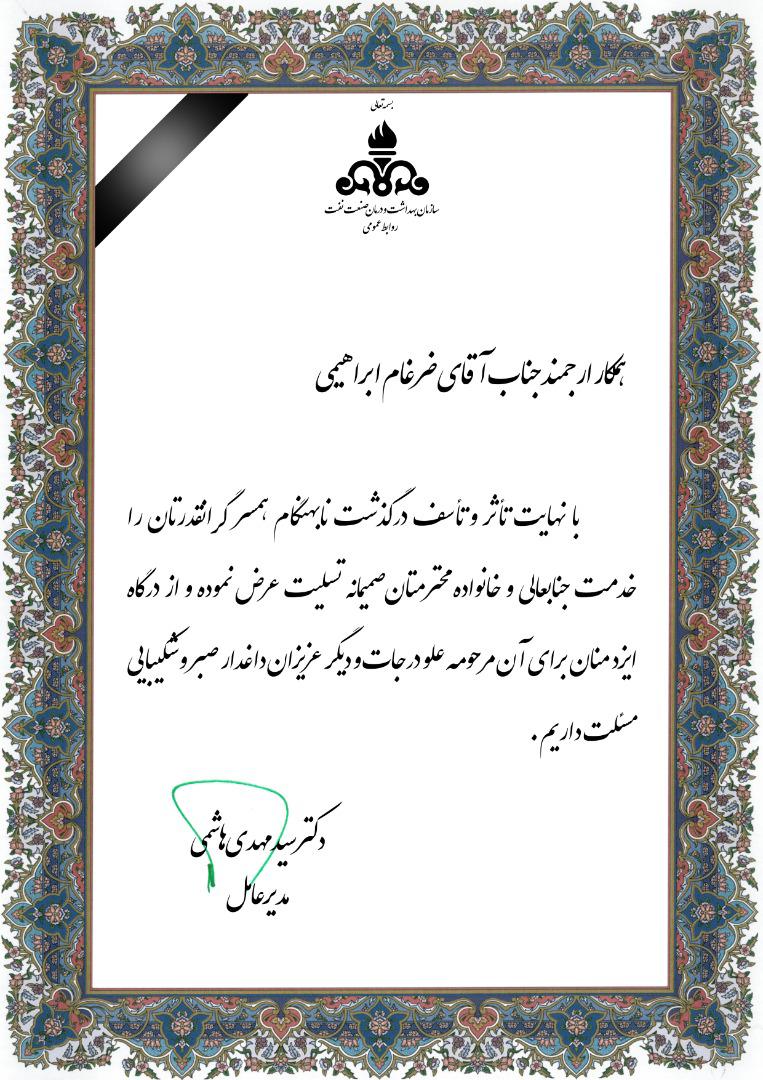 بسمه تعالی
سازمان بهداشت و درمان صنعت نفت
روابط عمومی
همکار ارجمند جناب آقای ضرغام ابراهیمی
با نهایت تأثر و تأسف درگذشت نابهنگام همسر گرانقدرتان را
خدمت جنابعالی و خانواده محترمتان صمیمانه تسلیت عرض نموده و از درگاه
ایزد منان برای آن مرحومه علو درجات و دیگر عزیزان داغدار صبر و شکیبایی
مسئلت داریم .
دکتر سید مهدی هاشمی
مدیرعامل